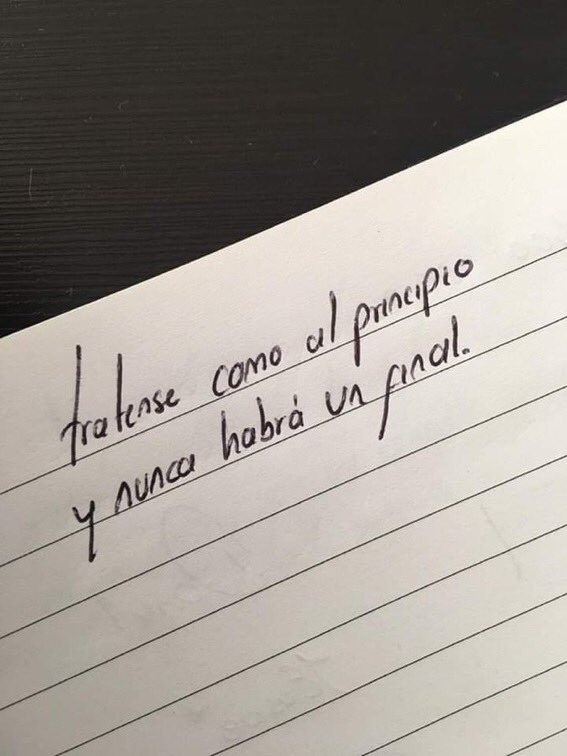 tratense como al principio
y nunca habrá un final.